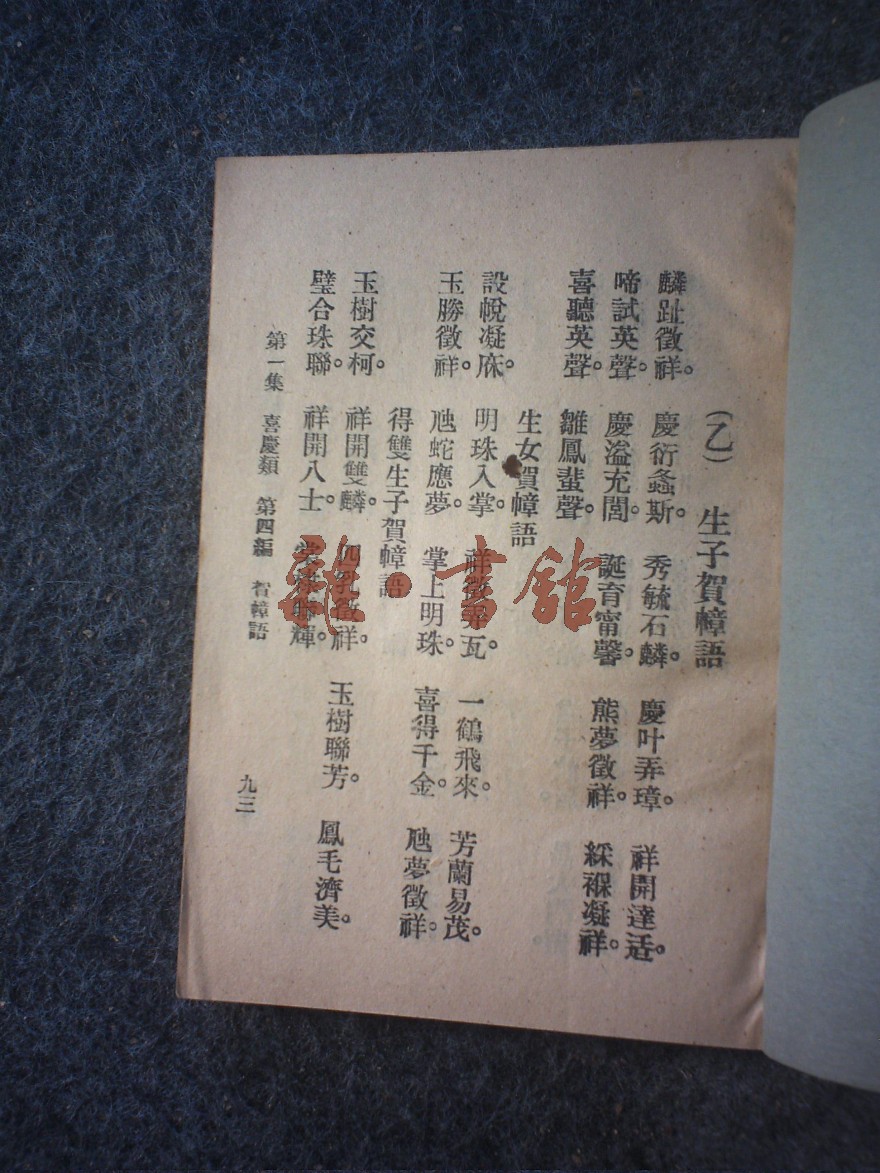 (乙) 生子賀幛語
麟趾徵祥。 慶衍螽斯。 秀毓石麟。 慶叶弄璋。 祥開達适。
啼試英聲。 慶溢充閭。 誕育甯馨。 熊夢徵祥。 綵褓凝祥。
喜聽英聲。 雛鳳蜚聲。
生女賀幛語
設帨凝庥。 明珠入掌。 祥徵弄瓦。 一鶴飛來。 芳蘭易茂。
玉勝徵祥。 虺蛇應夢。 掌上明珠。 喜得千金。 虺夢徵祥。
得雙生子賀幛語
玉樹交柯。 祥開雙麟。 四乳徵祥。 玉樹聯芳。 鳳毛濟美。
璧合珠聯。 祥開八士。 棠棣聯輝。
第一集 喜慶類 第四編 賀幛語 九三
雜·書館